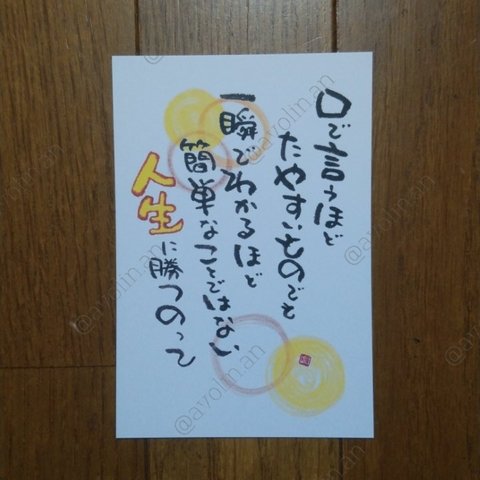 口で言うほど
たやすいものでも
一瞬でわかるほど
簡単なことではない
人生に勝つのって
@ayolin.an
@ayolin.an
@ayolin.an
@ayolin.an
@ayolin.an
@ayolin.an